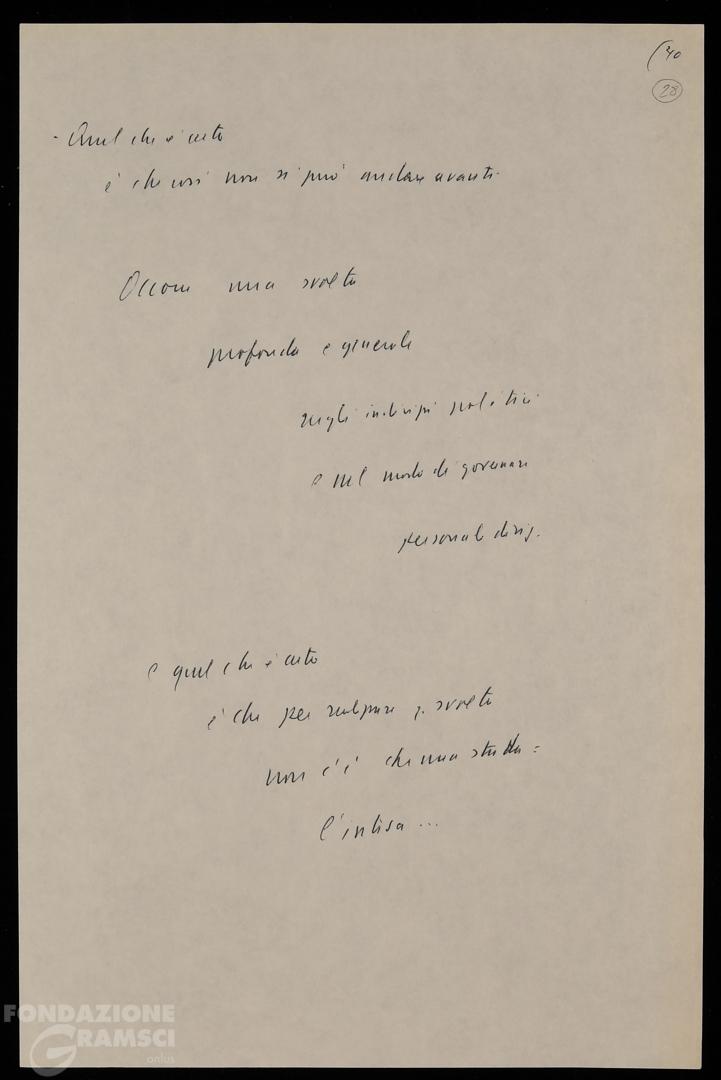 (40
28
- Quel che è certo
è che così non si può andare avanti.
Occorre una svolta
profonda e generale
negli indirizzi politici
e nel modo di governare
personale dirig.
e quel che è certo
è che per q. svolta
non c'è che una strada:
l'intesa...
FONDAZIONE
GRAMSCI
onlus